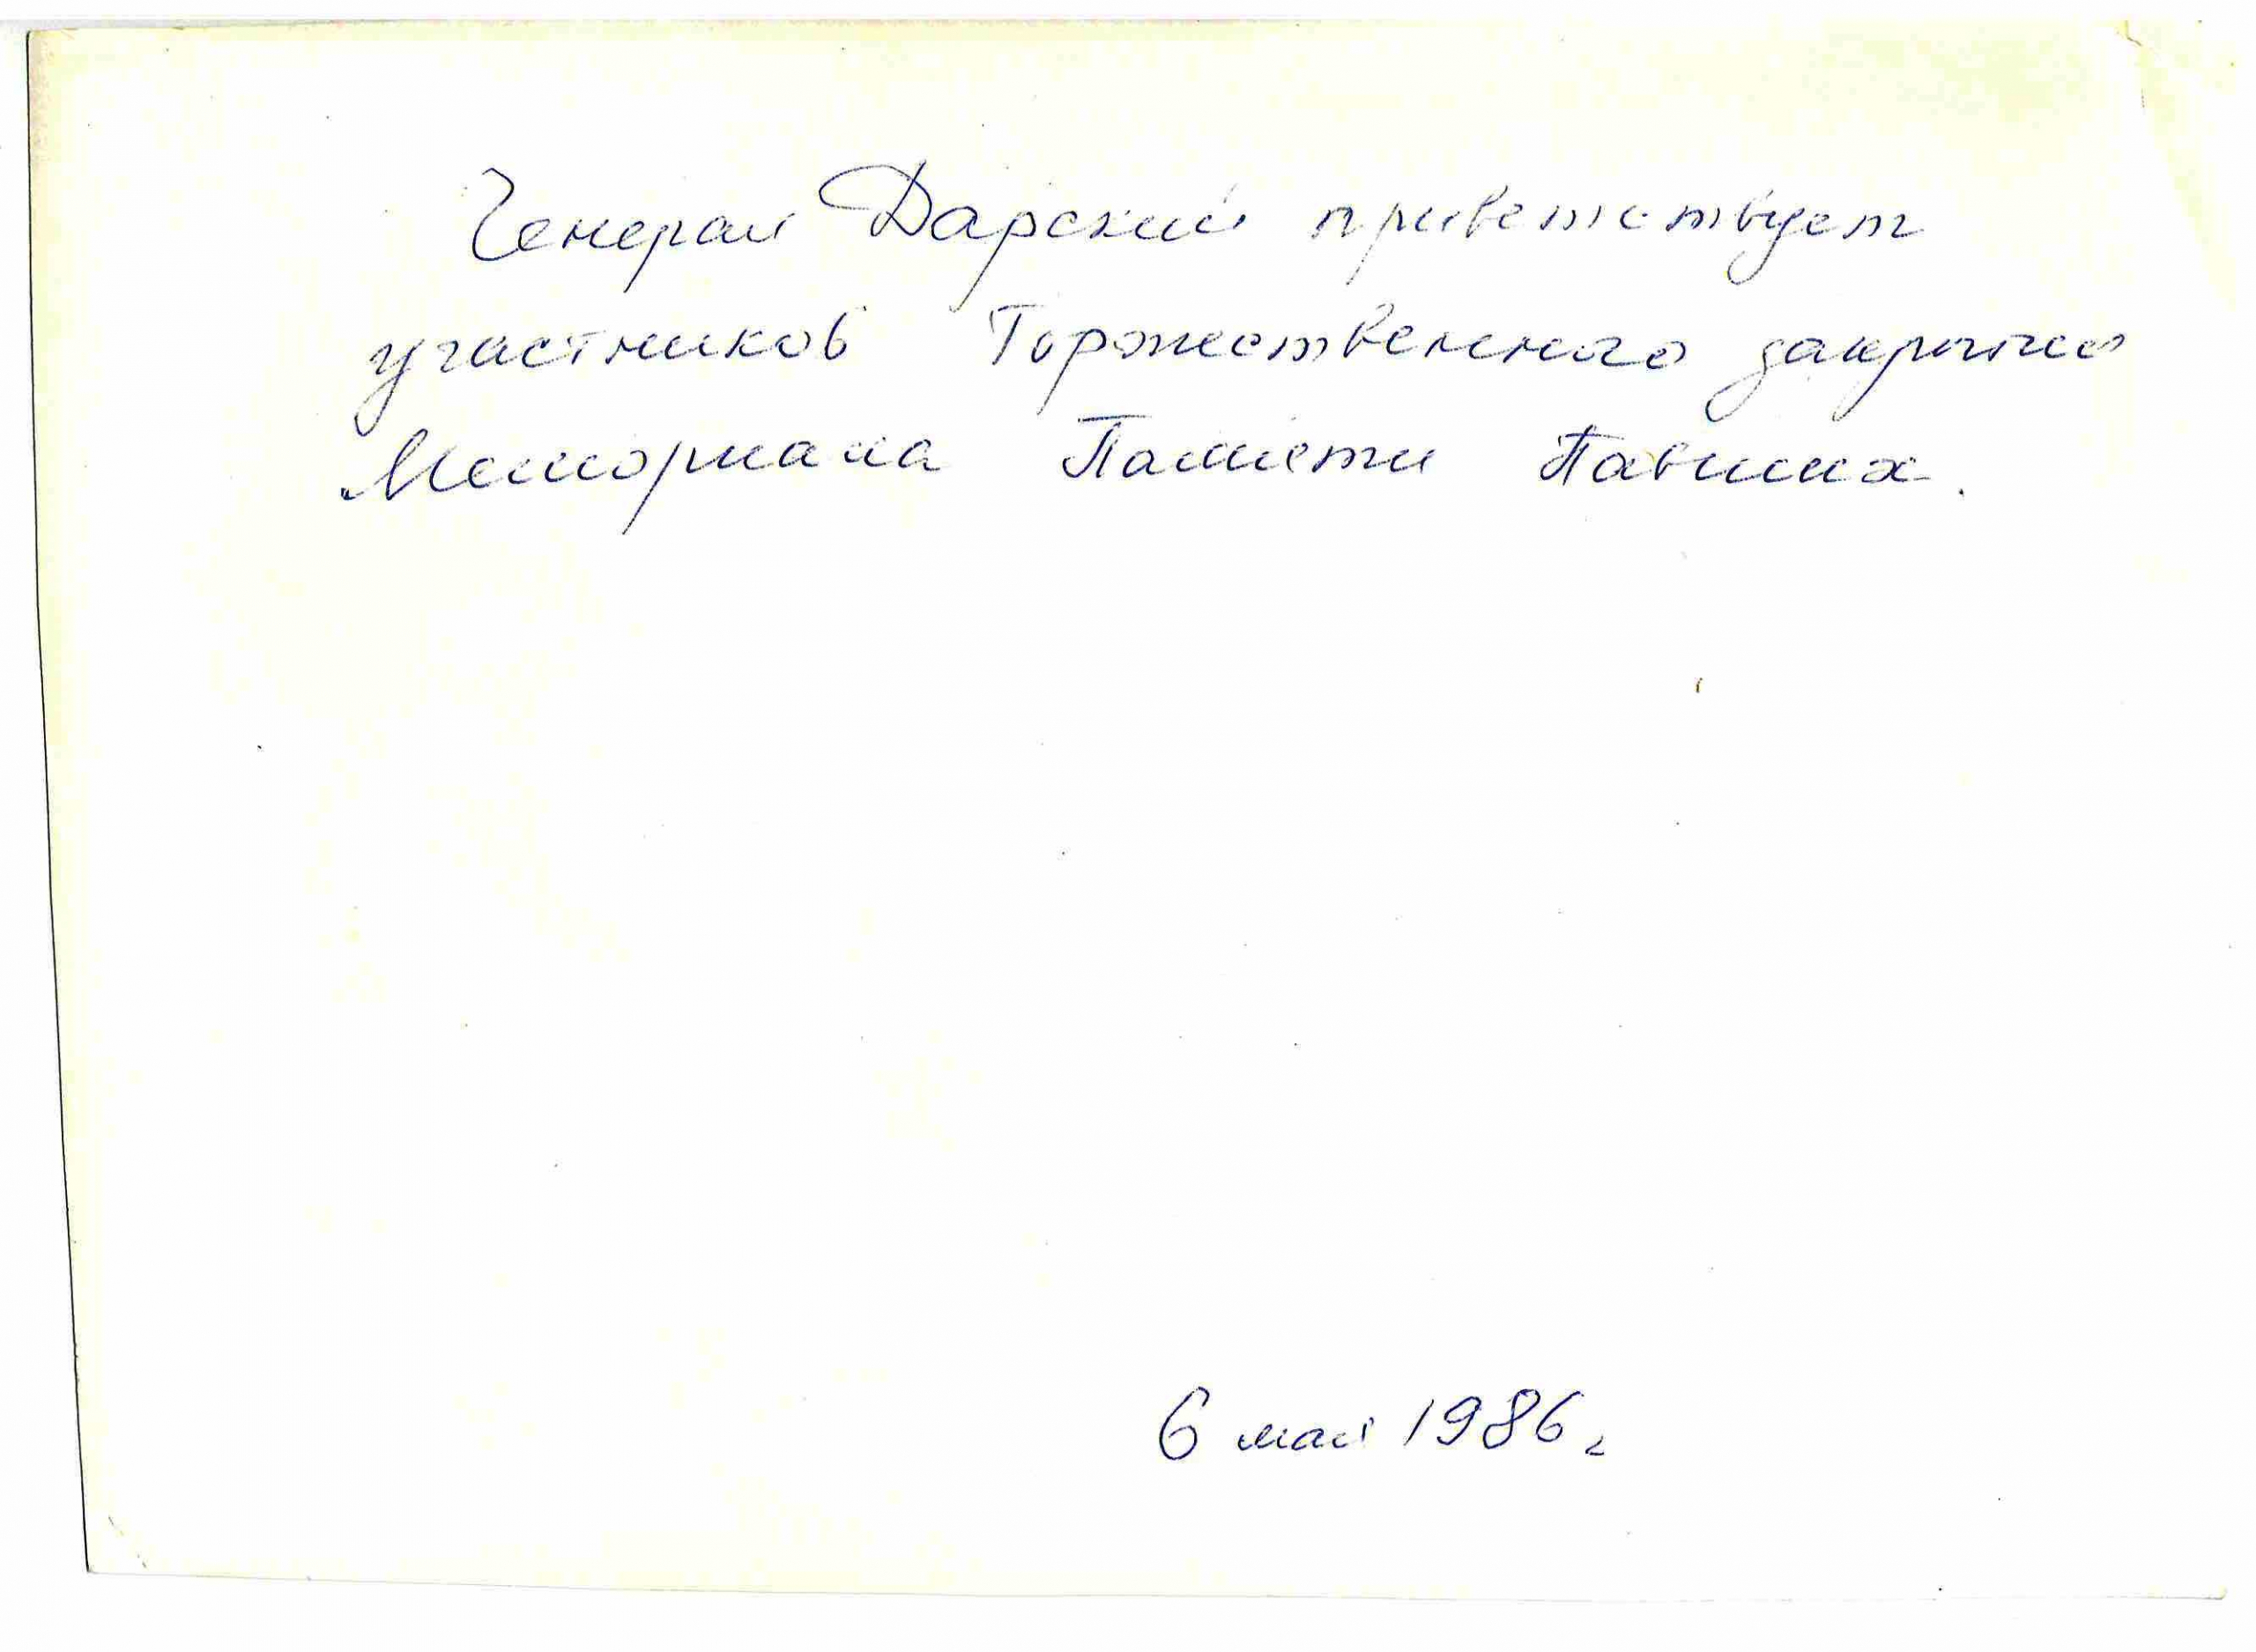 Генерал Дарский приветствует
участников Торжественного закрытия
Мемориала Памяти Павших.
6 мая 1986г